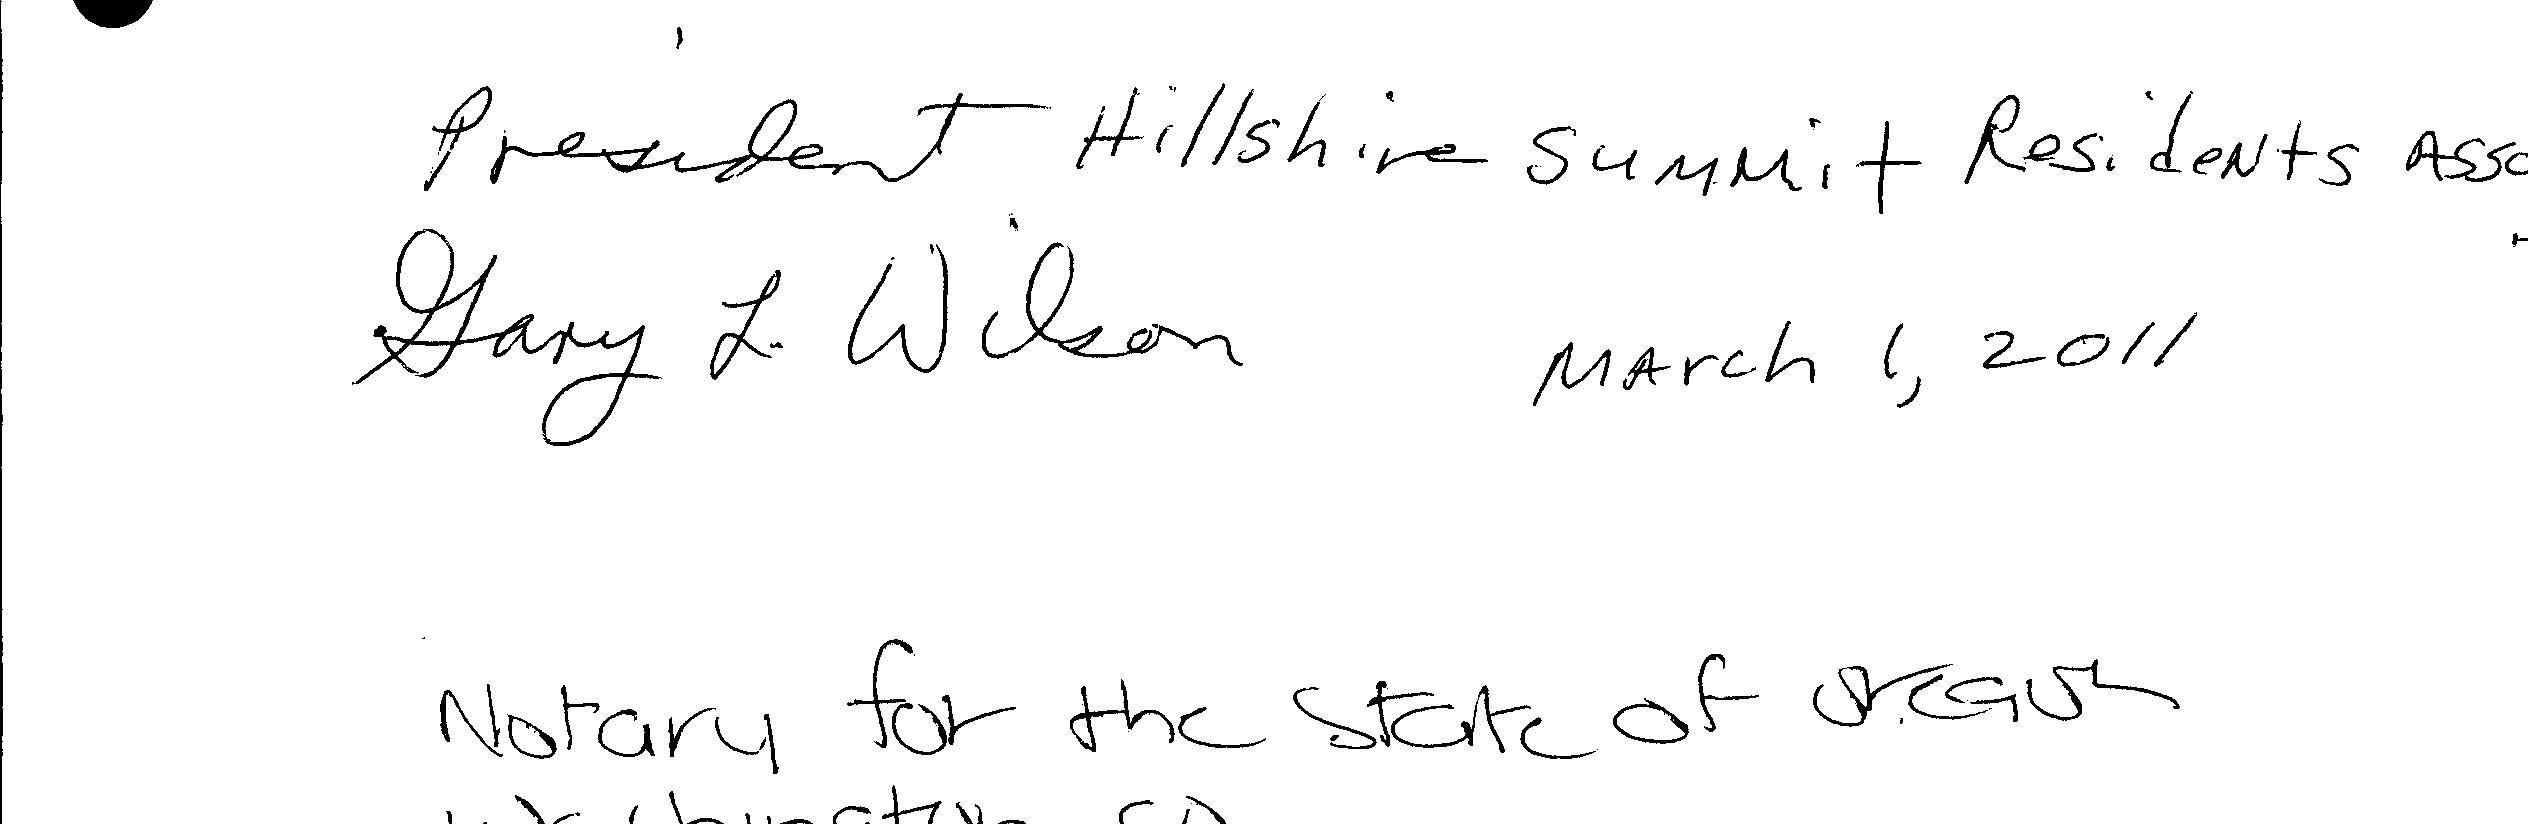 President Hillshire Summit Residents Asso
Gary L. Wilson March 1, 2011
Notary for the State of Oregon